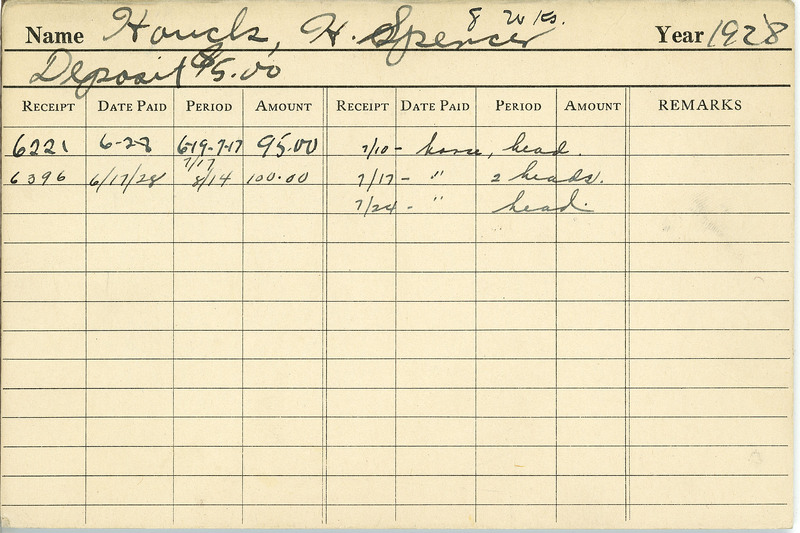 8 wks.
Name Houck, H. Spencer Year 1928
Deposit $5.00
RECEIPT DATE PAID PERIOD AMOUNT RECEIPT DATE PAID PERIOD AMOUNT REMARKS
6221 6-28 6-19-7-17 95.00 7/10 - horse, head.
7/17
6396 6/17/28 8/14 100.00 7/17 - " 2 heads.
7/24 - " head.